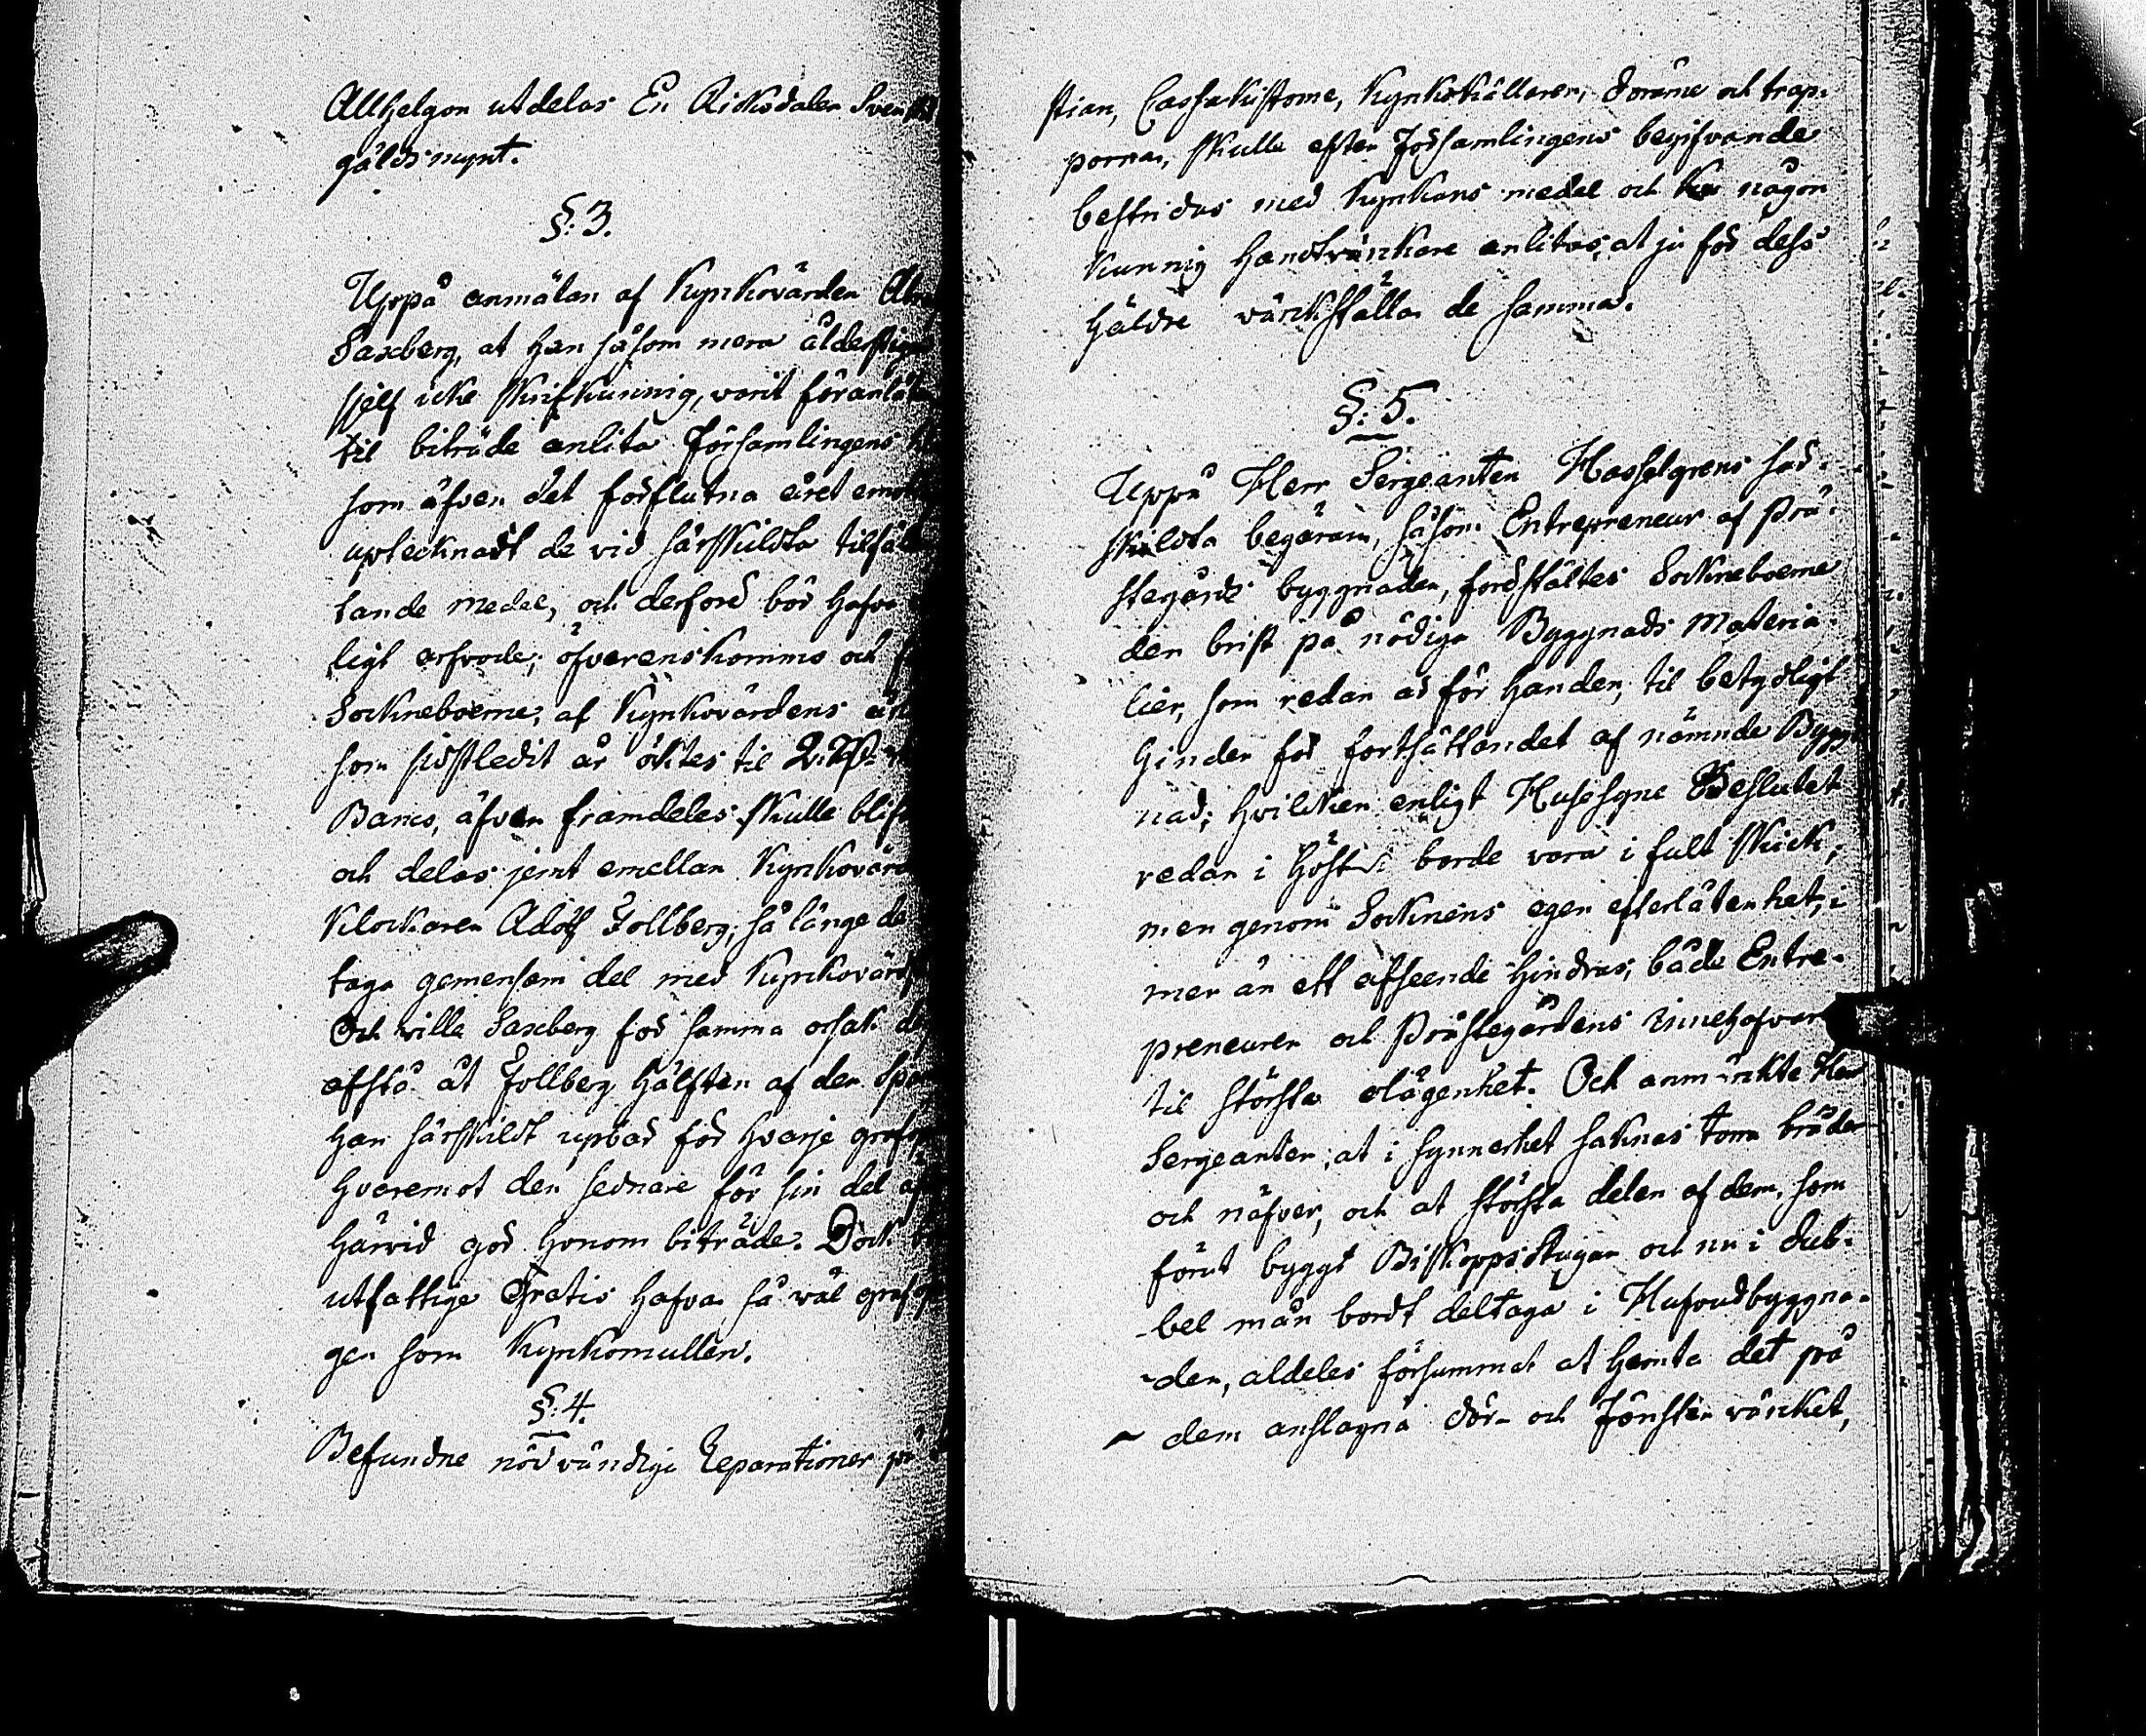 Allhelgon utdelas En Riksdaler Svensk
gälds mynt.
§. 3.
Uppå anmälan af Kyrkovärden
Saxberg, at han såsom mera ålderstigen
sjelf icke skrifkunnig, varit föranlåten
til biträde anlita Församlingens
som äfven det förflutna året
uptecknadt de vid särskildta
tande medel, och derföre bör hafva
ligt arfvode; öfverenskomms och
Sockneboerne, af Kyrkovärdens
som sidstledit år öktes til
Banco, äfven framdeles skulle
och delas jemt emellan
Klockaren Adolf Follberg, så länge de
taga gemensam del med
Och ville Saxberg för samma orsak
afstå åt Follberg hälften af den
han särskildt upbär för hvarje
hvaremot den sednare för sin del
härvid gör honom biträde. Dock
utfattige Gratis hafva så väl
gen som Kyrkomullen.
§. 4.
Befundne nödvändige Reparationer på
stian, Cassakistorne, Kyrkokällaren, dörarne och trap-
porna, skulle efter Församlingens begifvande
bestridas med Kyrkans medel och någon
kunnig Handtvärkare anlitas, at ju för dess
häldre värkställa de samma.
§. 5.
Uppå Herr Sergeanten Hasselgrens sär-
skildta begäran, såsom Entrepreneur af Prä-
stegårds byggnaden, förestältes Sockneboerne
den brist på nödiga Byggnads Materia-
lier, som redan är för handen, til betydligt
hinder för fortsättandet af nämnde Bygg-
nad; hvilcken enligt Husesyne Beslutet
redan i höst borde vara i fult skick,
men genom Socknens egen efterlåtenhet, i
mer än ett afseende hindras, både Entre-
preneuren och Prästegårdens Innehafvare
til största olägenhet. Och anmärkte Herr
Sergeanten, at i synnerhet saknas torra bräder
och näfver, och at största delen af dem, som
förut byggt Biskopps Stugan och nu i dub-
bel mån bordt deltaga i Hufvudbyggna-
den, aldeles försummat at hemta det på
dem anslagna dör- och Fönster värcket,